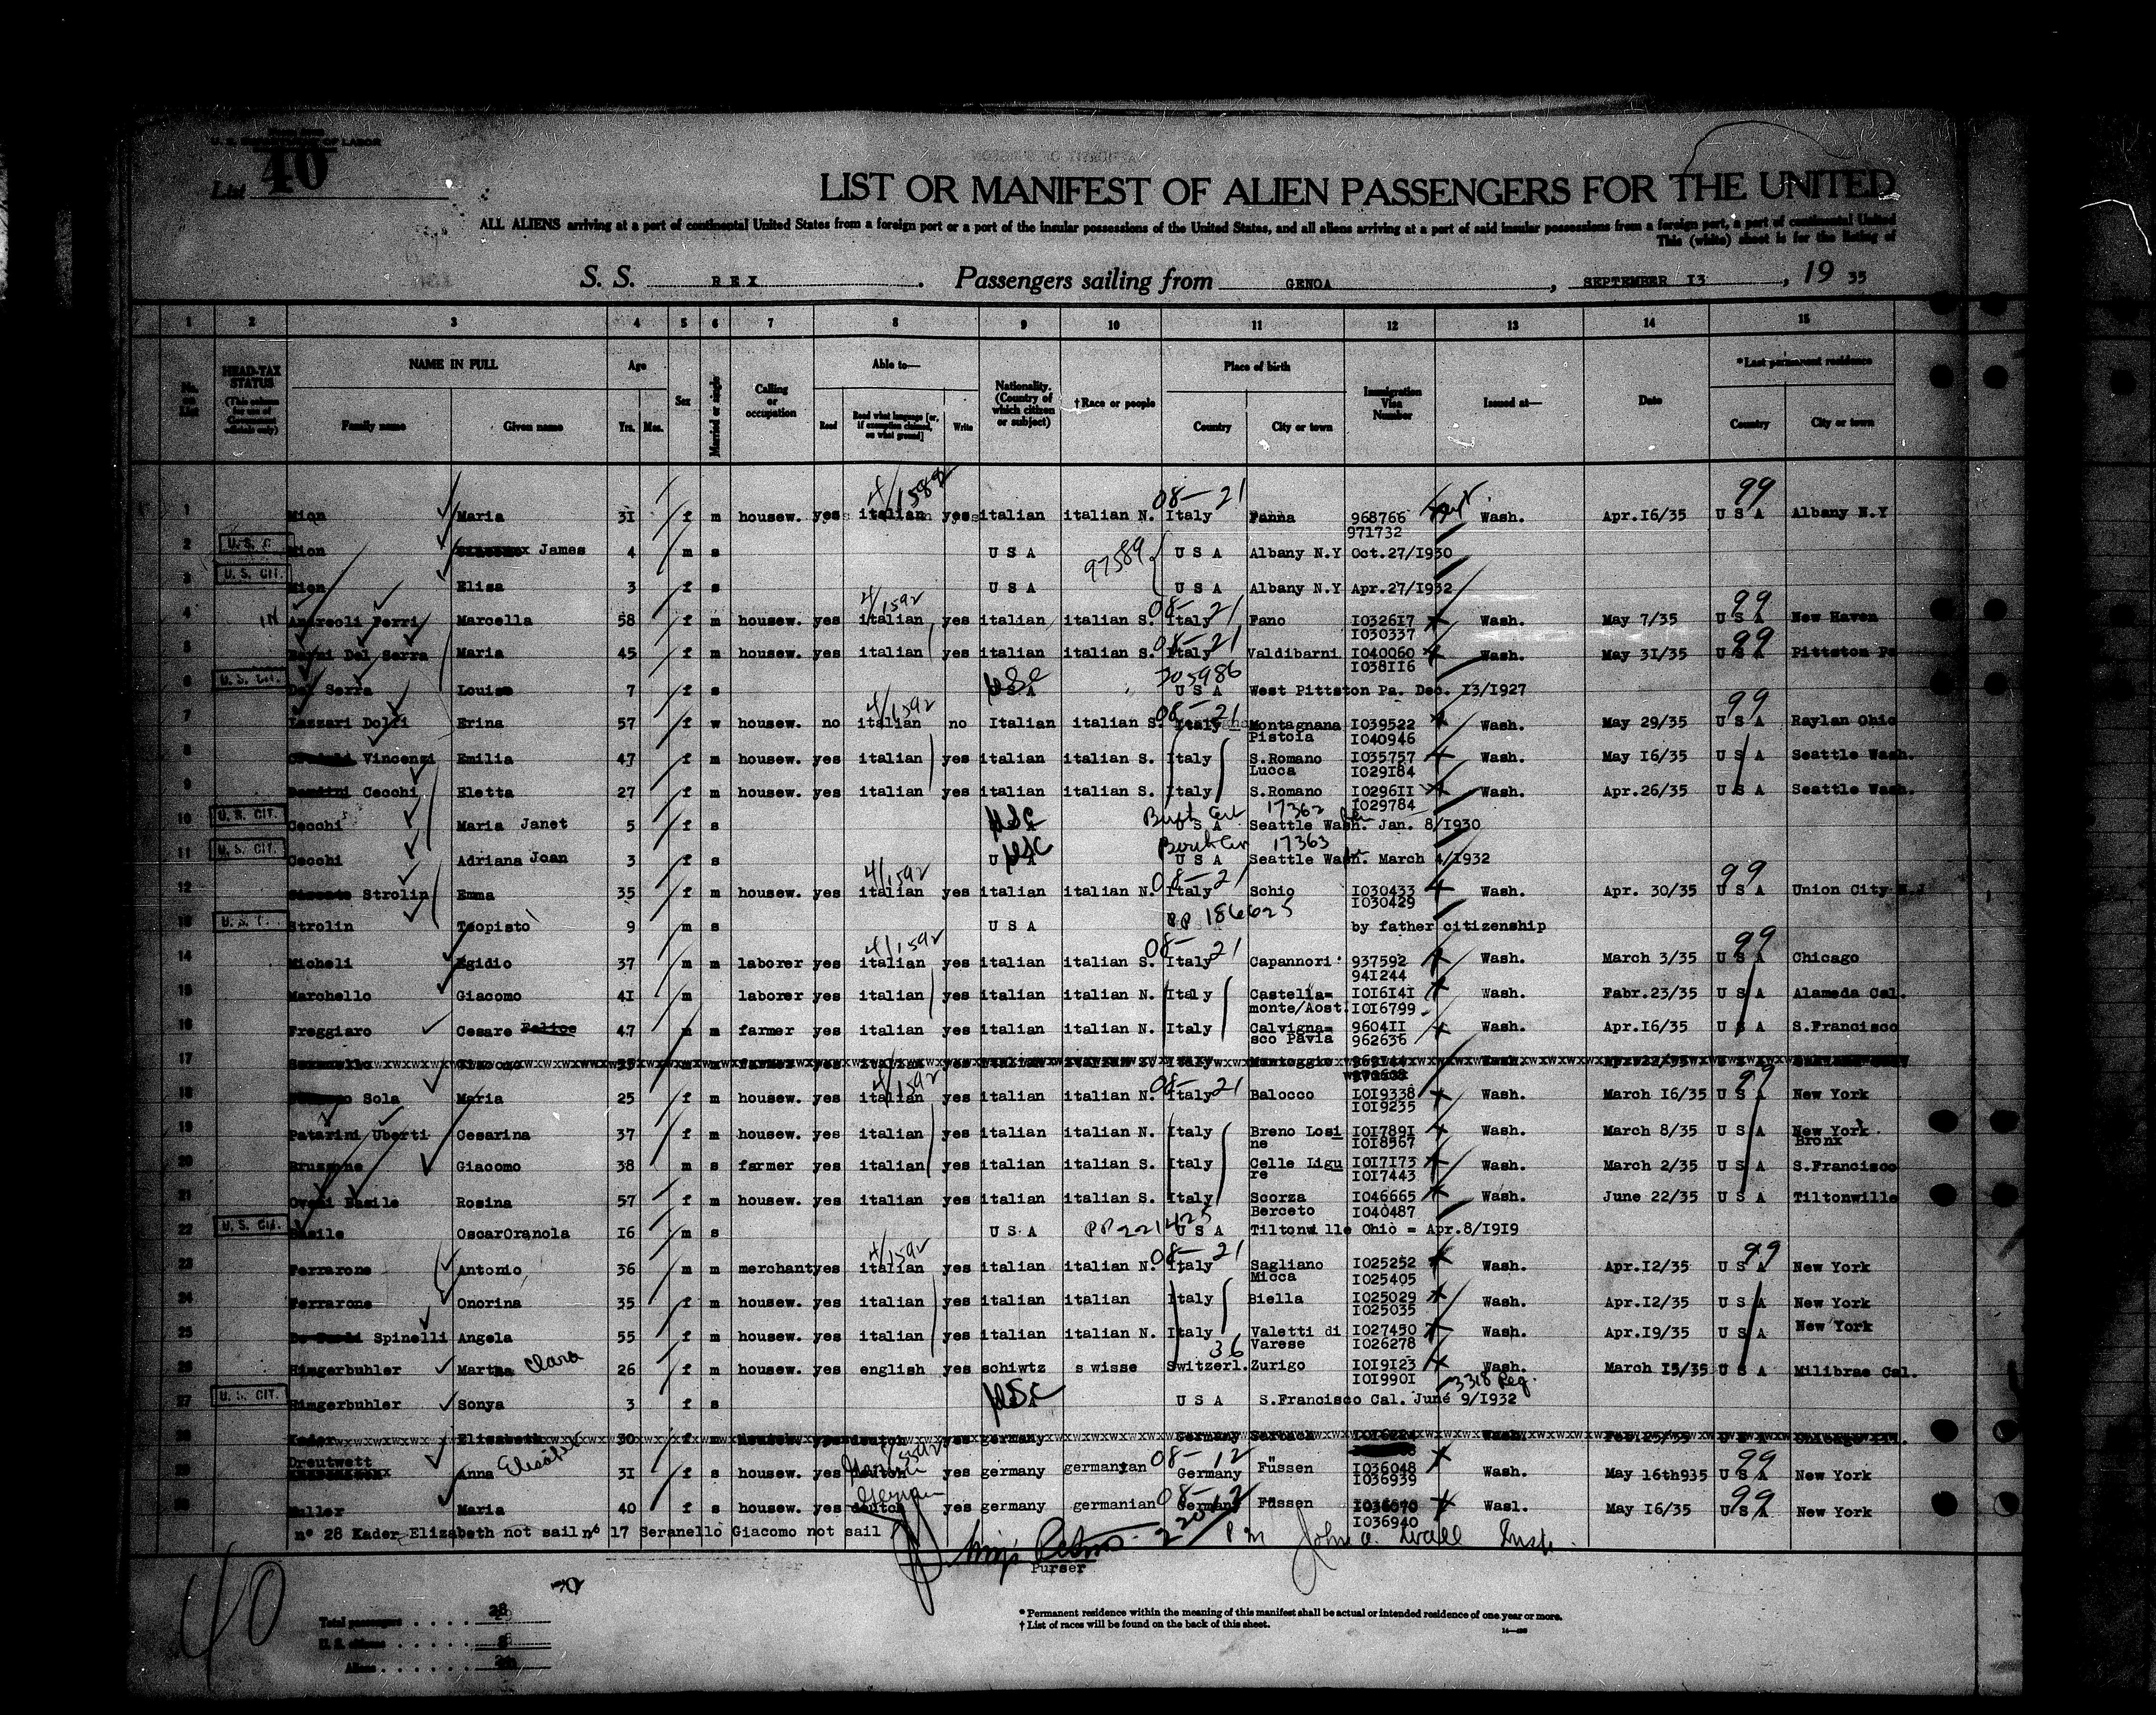 U. S. DEPARTMENT OF LABOR
List 40
LIST OR MANIFEST OF ALIEN PASSENGERS FOR THE UNITED
ALL ALIENS arriving at a port of continental United States from a foreign port or a port of the insular possessions of the United States, and all aliens arriving at a port of said insular possessions from a foreign port, a port of continental United
This (white) sheet is for the listing of
S. S. REX . Passengers sailing from GENOA , SEPTEMBER I3 , 19 35
1 2 3 4 5 6 7 8 9 10 11 12 13 14 15
No. on List HEAD-TAX STATUS (This column for use of Government officials only) NAME IN FULL Family name Given name Age Yrs. Mos. Sex Married or single Calling or occupation Able to— Read Read what language [or, if exemption claimed, on what ground] Write Nationality. (Country of which citizen or subject) †Race or people Place of birth Country City or town Immigration Visa Number Issued at— Date *Last permanent residence Country City or town
4/1592 08— 21 99
1 Mion Maria 3I f m housew. yes italian yes italian italian N. Italy Fanna 968766 Wash. Apr.I6/35 U S A Albany N.Y
971732
2 U.S. C Mion James 4 m s U S A 97589 U S A Albany N.Y Oct.27/I930
3 U. S. CIT. Mion Elisa 3 f s U S A U S A Albany N.Y Apr.27/I932
4/1592 08— 21 99
4 Andreoli Ferri Marcella 58 f m housew. yes italian yes italian italian S. Italy Fano I0326I7 Wash. May 7/35 U S A New Haven
I030337
08— 21 99
5 Del Serra Maria 45 f m housew. yes italian yes italian italian S. Italy Valdibarni I040060 Wash. May 3I/35 U S A Pittston Pa
I038II6
6 U. S. CIT. Del Serra Louise 7 f s USC U S A 705986 U S A West Pittston Pa. Dec. I3/I927
4/1592 08— 21 99
7 Lazzari Dolfi Erina 57 f w housew. no italian no Italian italian S. Italy Montagnana I039522 Wash. May 29/35 U S A Raylan Ohio
Pistoia I040946
8 Vincenzi Emilia 47 f m housew. yes italian yes italian italian S. Italy S.Romano I035757 Wash. May I6/35 U S A Seattle Wash.
Lucca I029I84
9 Cecchi Eletta 27 f m housew. yes italian yes italian italian S. Italy S.Romano I0296II Wash. Apr.26/35 U S A Seattle Wash.
I029784
10 U. S. CIT. Cecchi Maria Janet 5 f s USC 17362 U S A Seattle Wash. Jan. 8/I930
11 U. S. CIT. Cecchi Adriana Joan 3 f s USC 17363 U S A Seattle Wash. March 4/I932
4/1592 08— 21 99
12 Strolin Emma 35 f m housew. yes italian yes italian italian N. Italy Schio I030433 Wash. Apr. 30/35 U S A Union City N.J
I030429
13 Strolin Teopisto 9 m s U S A PP 186625 by father citizenship
4/1592 08— 21 99
14 Micheli Egidio 37 m m laborer yes italian yes italian italian S. Italy Capannori 937592 Wash. March 3/35 U S A Chicago
94I244
15 Marchello Giacomo 4I m laborer yes italian yes italian italian N. Italy Castella= I0I6I4I Wash. Fabr.23/35 U S A Alameda Cal.
monte/Aost. I0I6799
16 Freggiaro Cesare Felice 47 m m farmer yes italian yes italian italian N. Italy Calvigna= 9604II Wash. Apr.I6/35 U S A S.Francisco
sco Pavia 962636
17
4/1592 08— 21 99
18 Sola Maria 25 f m housew. yes italian yes italian italian N. Italy Balocco I0I9338 Wash. March I6/35 U S A New York
I0I9235
19 Patarini Uberti Cesarina 37 f m housew. yes italian yes italian italian N. Italy Breno Losi I0I789I Wash. March 8/35 U S A New York
ne I0I8567 Bronx
20 Bruzzone Giacomo 38 m s farmer yes italian yes italian italian S. Italy Celle Ligu I0I7I73 Wash. March 2/35 U S A S.Francisco
re I0I7443
21 Basile Rosina 57 f m housew. yes italian yes italian italian S. Italy Scorza I046665 Wash. June 22/35 U S A Tiltonville
Berceto I040487
22 U. S. CIT. Basile OscarOranola I6 m s U S A PP 221425 U S A Tiltonville Ohio = Apr.8/I9I9
4/1592 08— 21 99
23 Ferrarone Antonio 36 m m merchant yes italian yes italian italian N. Italy Sagliano I025252 Wash. Apr.I2/35 U S A New York
Micca I025405
24 Ferrarone Onorina 35 f m housew. yes italian yes italian italian Italy Biella I025029 Wash. Apr.I2/35 U S A New York
I025035
25 Spinelli Angela 55 f m housew. yes italian yes italian italian N. Italy Valetti di I027450 Wash. Apr.I9/35 U S A New York
36 Varese I026278
26 Himgerbuhler Martha Clara 26 f m housew. yes english yes schiwtz swisse Switzerl. Zurigo I0I9I23 Wash. March I5/35 U S A Milibrae Cal.
I0I990I 3318 Reg.
27 U. S. CIT. Himgerbuhler Sonya 3 f s USC U S A S.Francisco Cal. June 9/I932
28 Kader Elisabeth 30
29 Dreutwett Anna Elisabeth 3I f s housew. yes German yes germany germanyan 08— 12 Germany Füssen I036048 Wash. May I6th935 99 U S A New York
I036939
30 Muller Maria 40 f s housew. yes deutch German yes germany germanian 08— 12 Germany Füssen Wasl. May I6/35 99 U S A New York
I036940
n° 28 Kader Elizabeth not sail n° I7 Seranello Giacomo not sail
220 PM John A. Wall Insp.
Purser
40
Total passengers . . . . . 28
U. S. citizens . . . . .
Aliens . . . . . .
* Permanent residence within the meaning of this manifest shall be actual or intended residence of one year or more.
† List of races will be found on the back of this sheet.